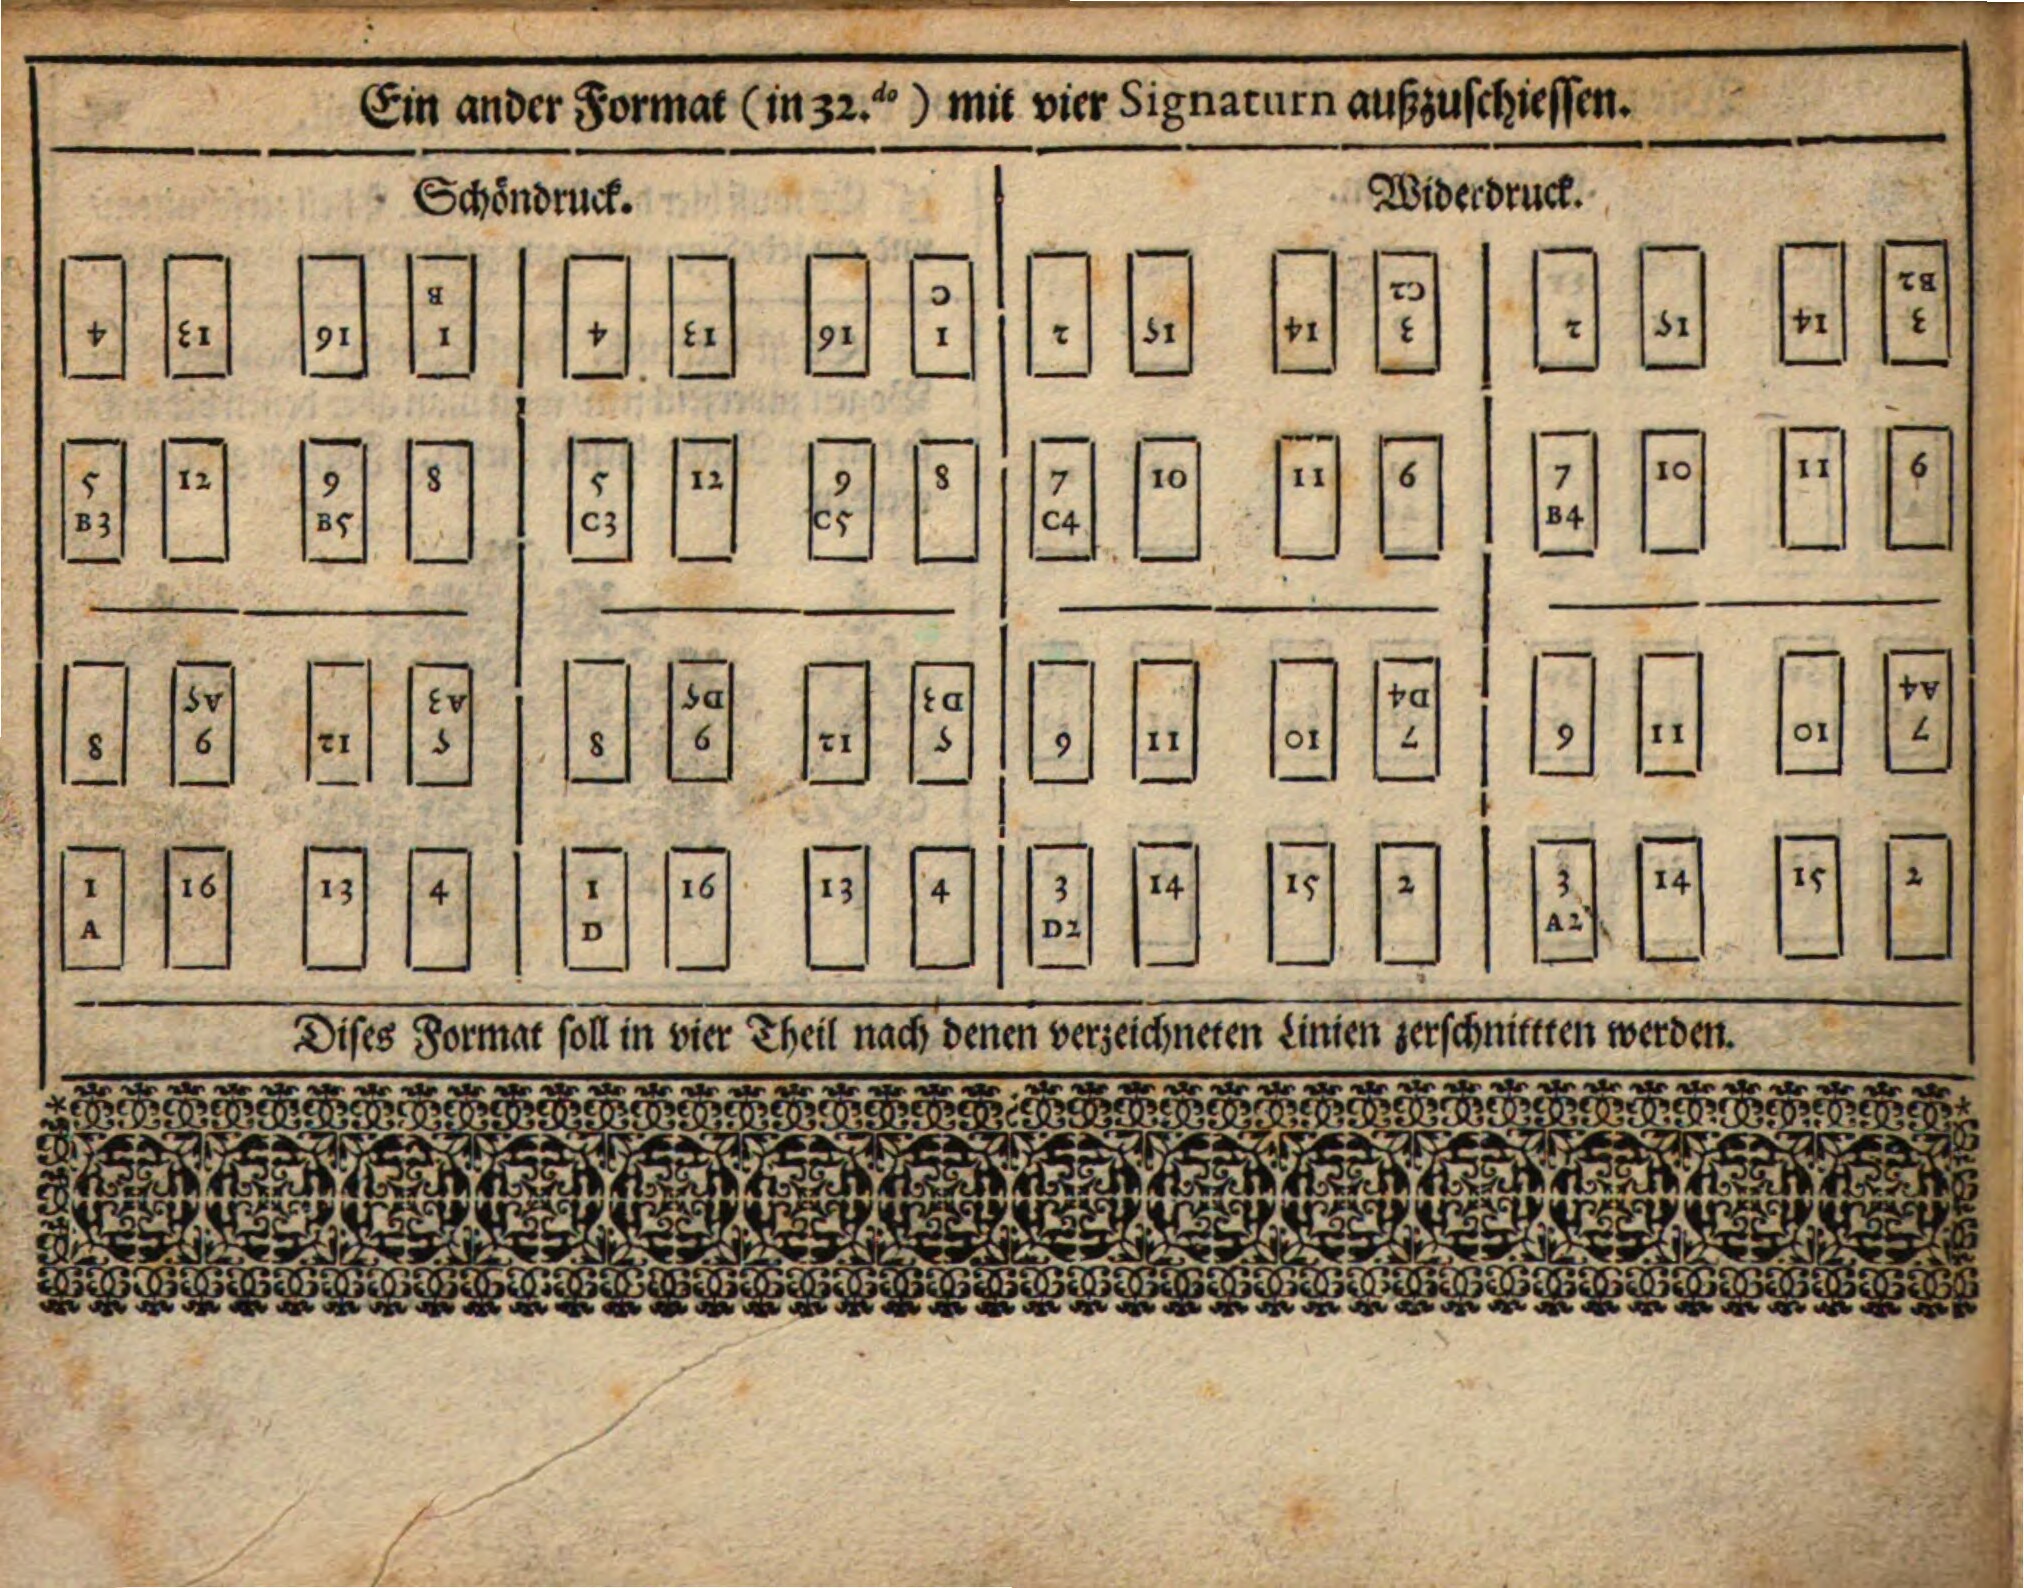 Ein ander Format (in 32.do) mit vier Signaturn außzuschiessen.
Schöndruck. Widerdruck.
B C C2 B2
4 13 16 1 4 13 16 1 2 15 14 3 2 15 14 3
5 12 9 8 5 12 9 8 7 10 11 6 7 10 11 6
B3 B5 C3 C5 C4 B4
A5 A3 D5 D3 D4 A4
8 9 12 5 8 9 12 5 6 11 10 7 6 11 10 7
1 16 13 4 1 16 13 4 3 14 15 2 3 14 15 2
A D D2 A2
Dises Format soll in vier Theil nach denen verzeichneten Linien zerschnittten werden.